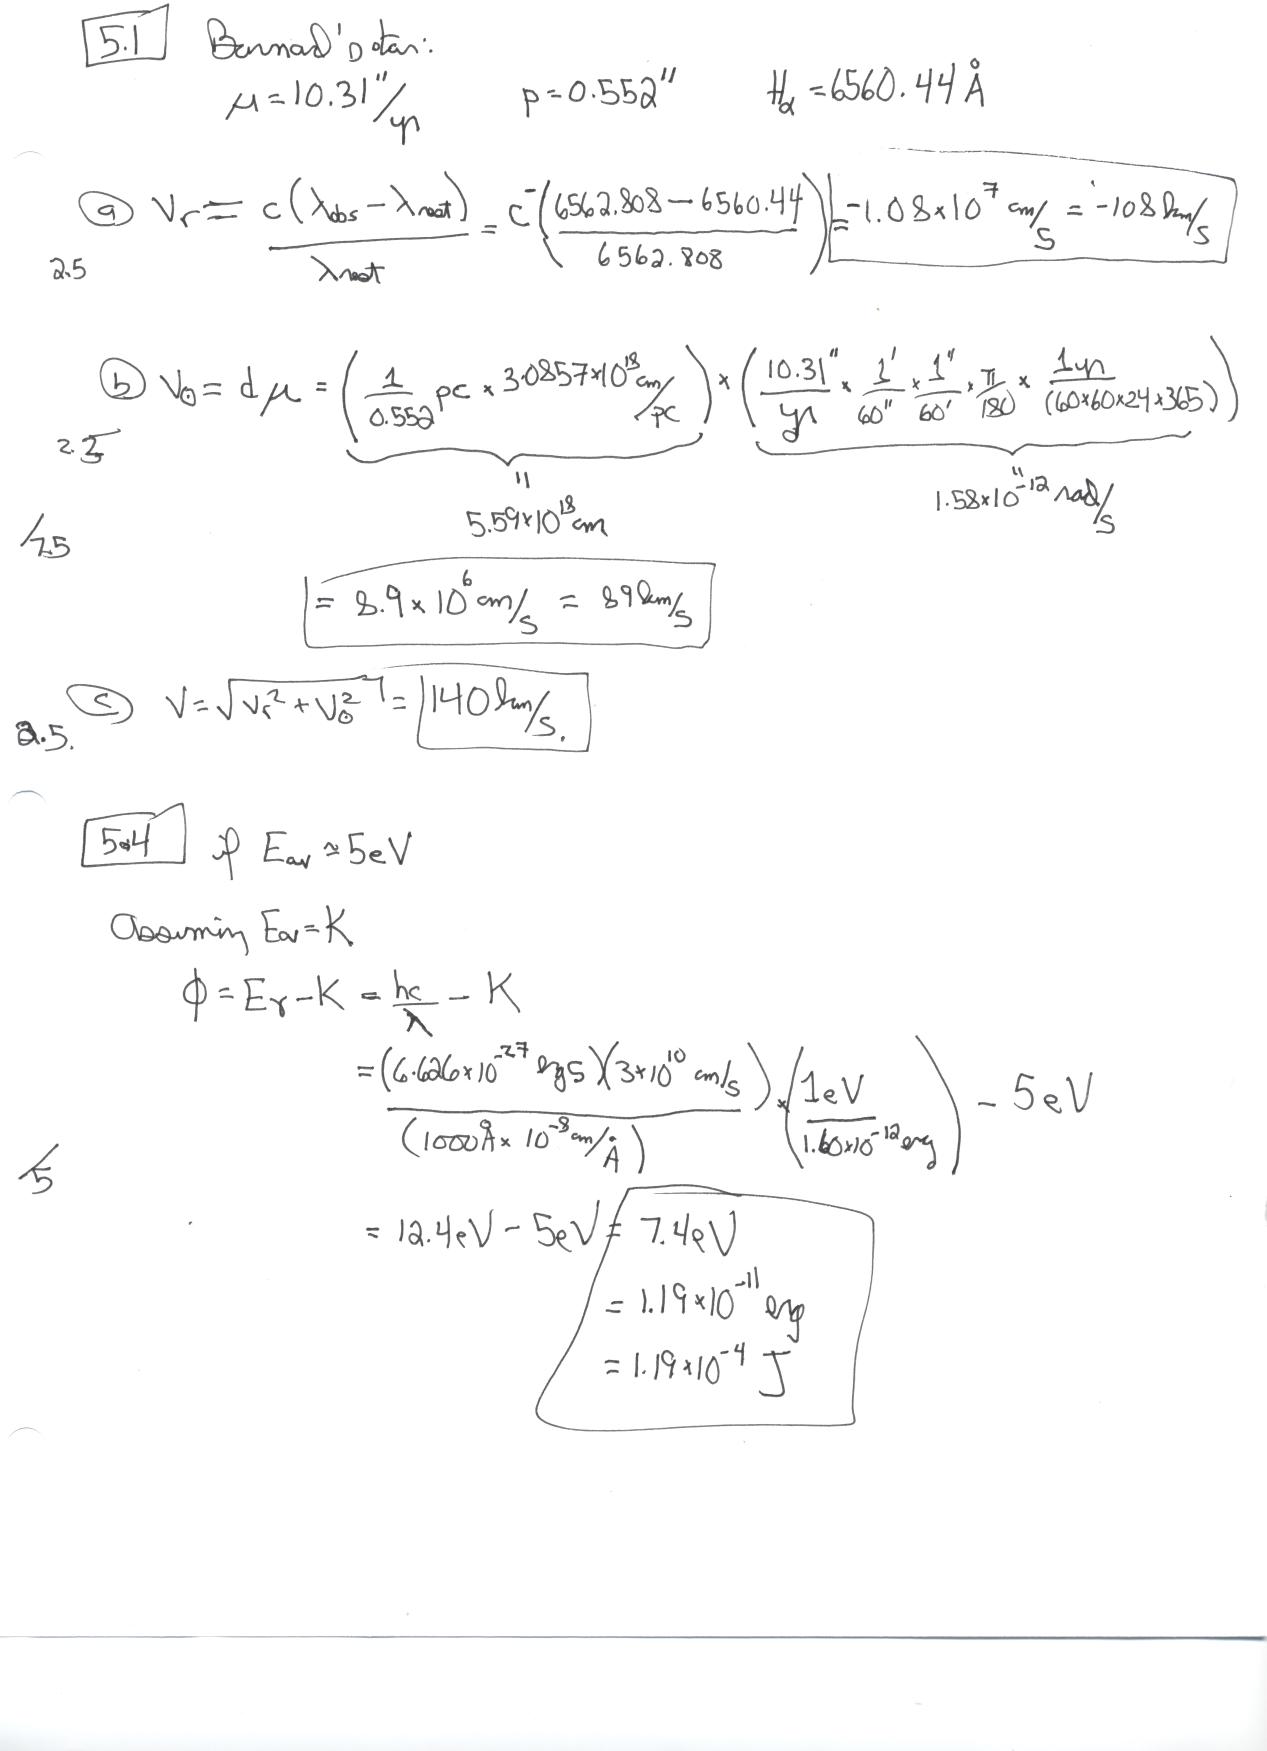 5.1 Barnard's star:
μ=10.31"/yr p=0.552" Hα=6560.44 Å
ⓐ Vr = c(λobs − λrest)/λrest = c −(6562.808 − 6560.44 / 6562.808) = −1.08×10⁷ cm/s = −108 km/s
2.5
ⓑ Vθ = dμ = (1/0.552 pc × 3.0857×10¹⁸ cm/pc) × (10.31"/yr × 1'/60" × 1"/60' × π/180 × 1yr/(60×60×24×365))
2.5
" "
5.59×10¹⁸ cm 1.58×10⁻¹² rad/s
/7.5
= 8.9 × 10⁶ cm/s = 89 km/s
ⓒ V = √(Vr² + Vθ²) = 140 km/s.
2.5.
5.4 if Eav ≈ 5eV
Assuming Eav = K
φ = Eγ − K = hc/λ − K
= (6.626×10⁻²⁷ erg s)(3×10¹⁰ cm/s)/(1000Å × 10⁻⁸ cm/Å) × (1eV/1.60×10⁻¹² erg) − 5eV
/5
= 12.4eV − 5eV = 7.4eV
= 1.19×10⁻¹¹ erg
= 1.19×10⁻⁴ J